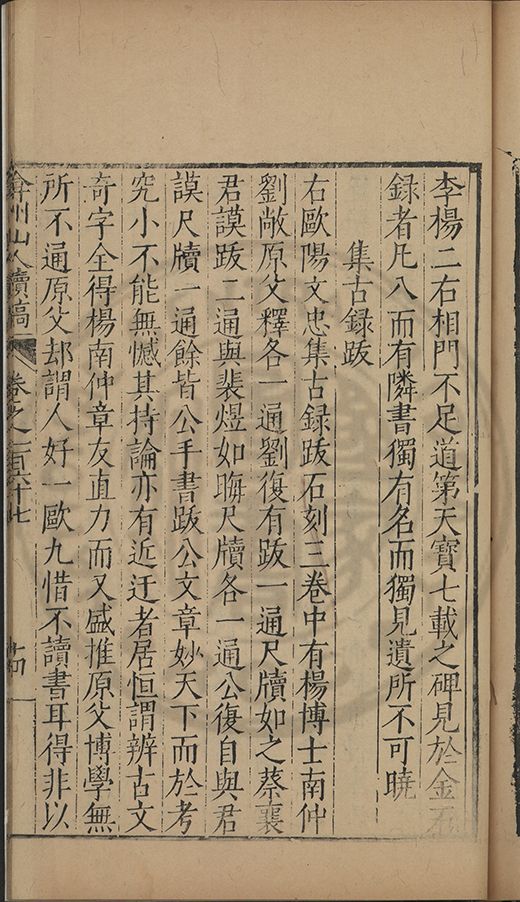 李楊二右相門不足道第天寶七載之碑見於金石
録者凡八而有隣書獨有名而獨見遺所不可曉
集古録跋
右歐陽文忠集古録跋石刻三卷中有楊博士南仲
劉敞原父釋各一通劉復有跋一通尺牘如之蔡襄
君謨跋二通與裴煜如晦尺牘各一通公復自與君
謨尺牘一通餘皆公手書跋公文章妙天下而於考
究小不能無憾其持論亦有近迂者居恒謂辨古文
奇字全得楊南仲章友直力而又盛推原父博學無
所不通原父却謂人好一歐九惜不讀書耳得非以
弇州山人續稿 卷之一百六十七 十四